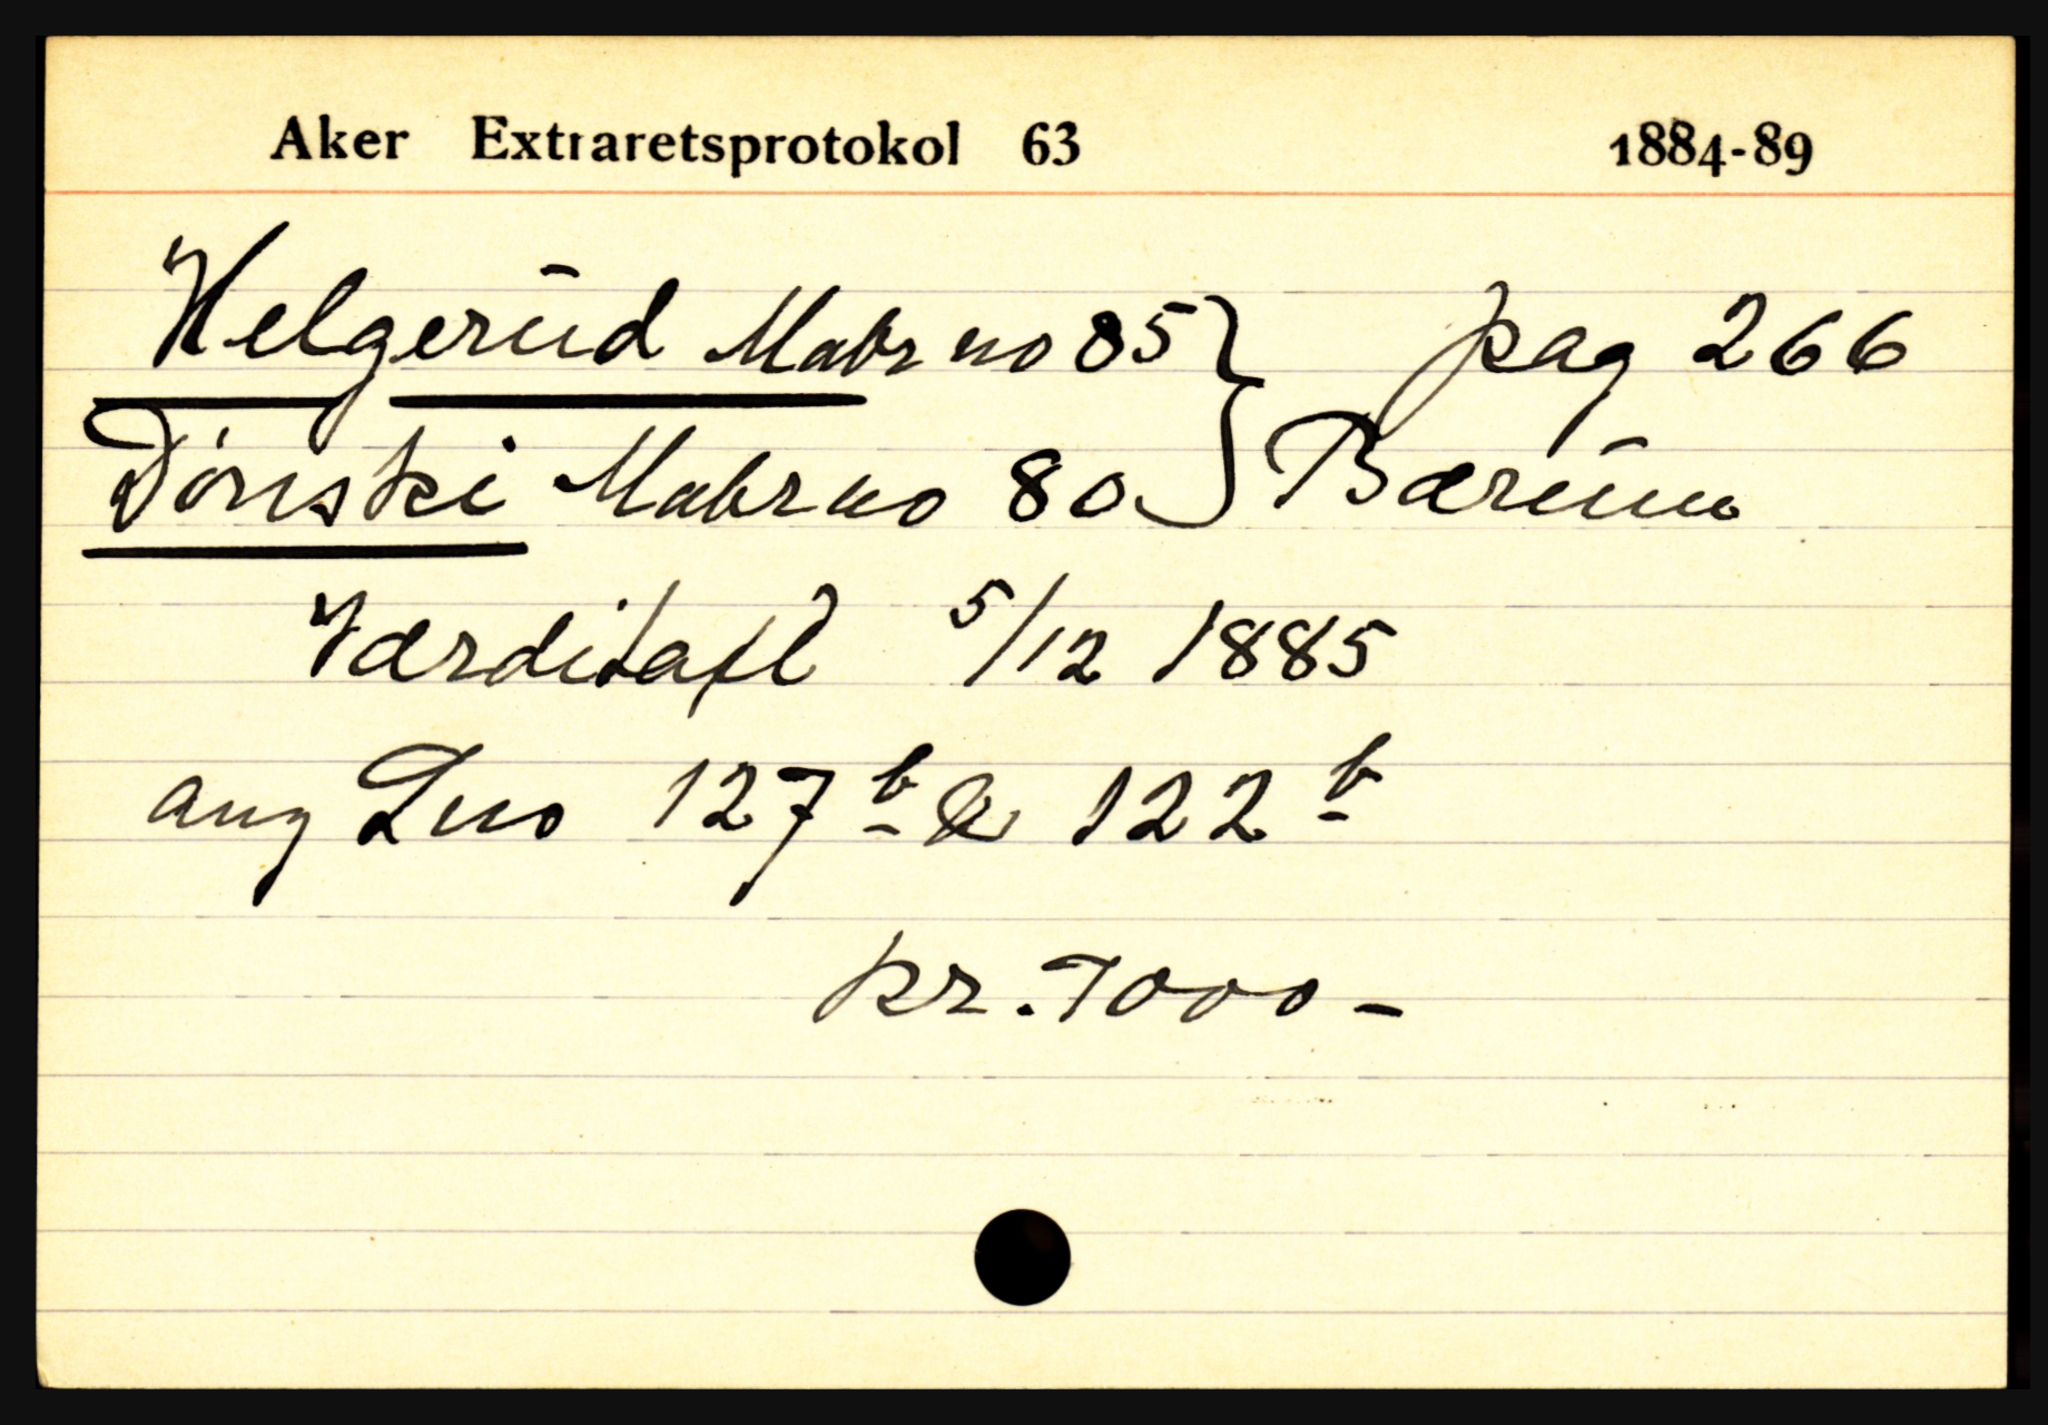 Aker Extraretsprotokol 63 1884-89
Helgerud Matr no 85 } pag 266
Dønski Matr no 80 } Bærum
Værditaxt 5/12 1885
ang Lno 127 b & 122 b
kr. 7000 -